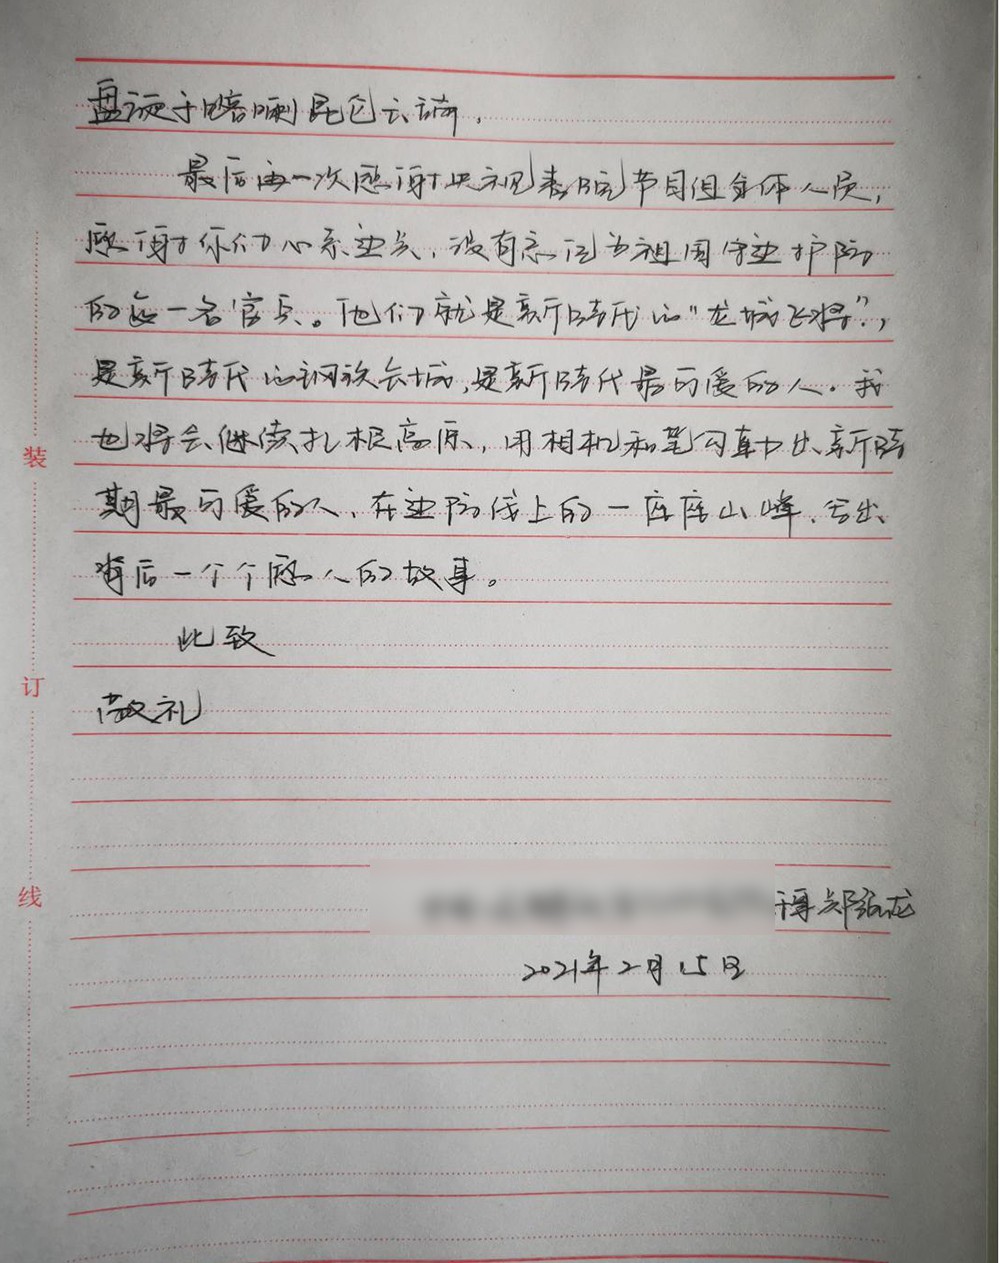 盘旋于喀喇昆仑云端。
最后再一次感谢央视春晚节目组全体人员,
感谢你们心系边关,没有忘记为祖国守边护防
的每一名官兵。他们就是新时代的“龙城飞将”,
是新时代的钢铁长城,是新时代最可爱的人。我
也将会继续扎根高原,用相机和笔勾勒出新时
期最可爱的人、在边防线上的一座座山峰、写出
背后一个个感人的故事。
此致
敬礼
干事 郑强龙
2021年2月15日
装
订
线